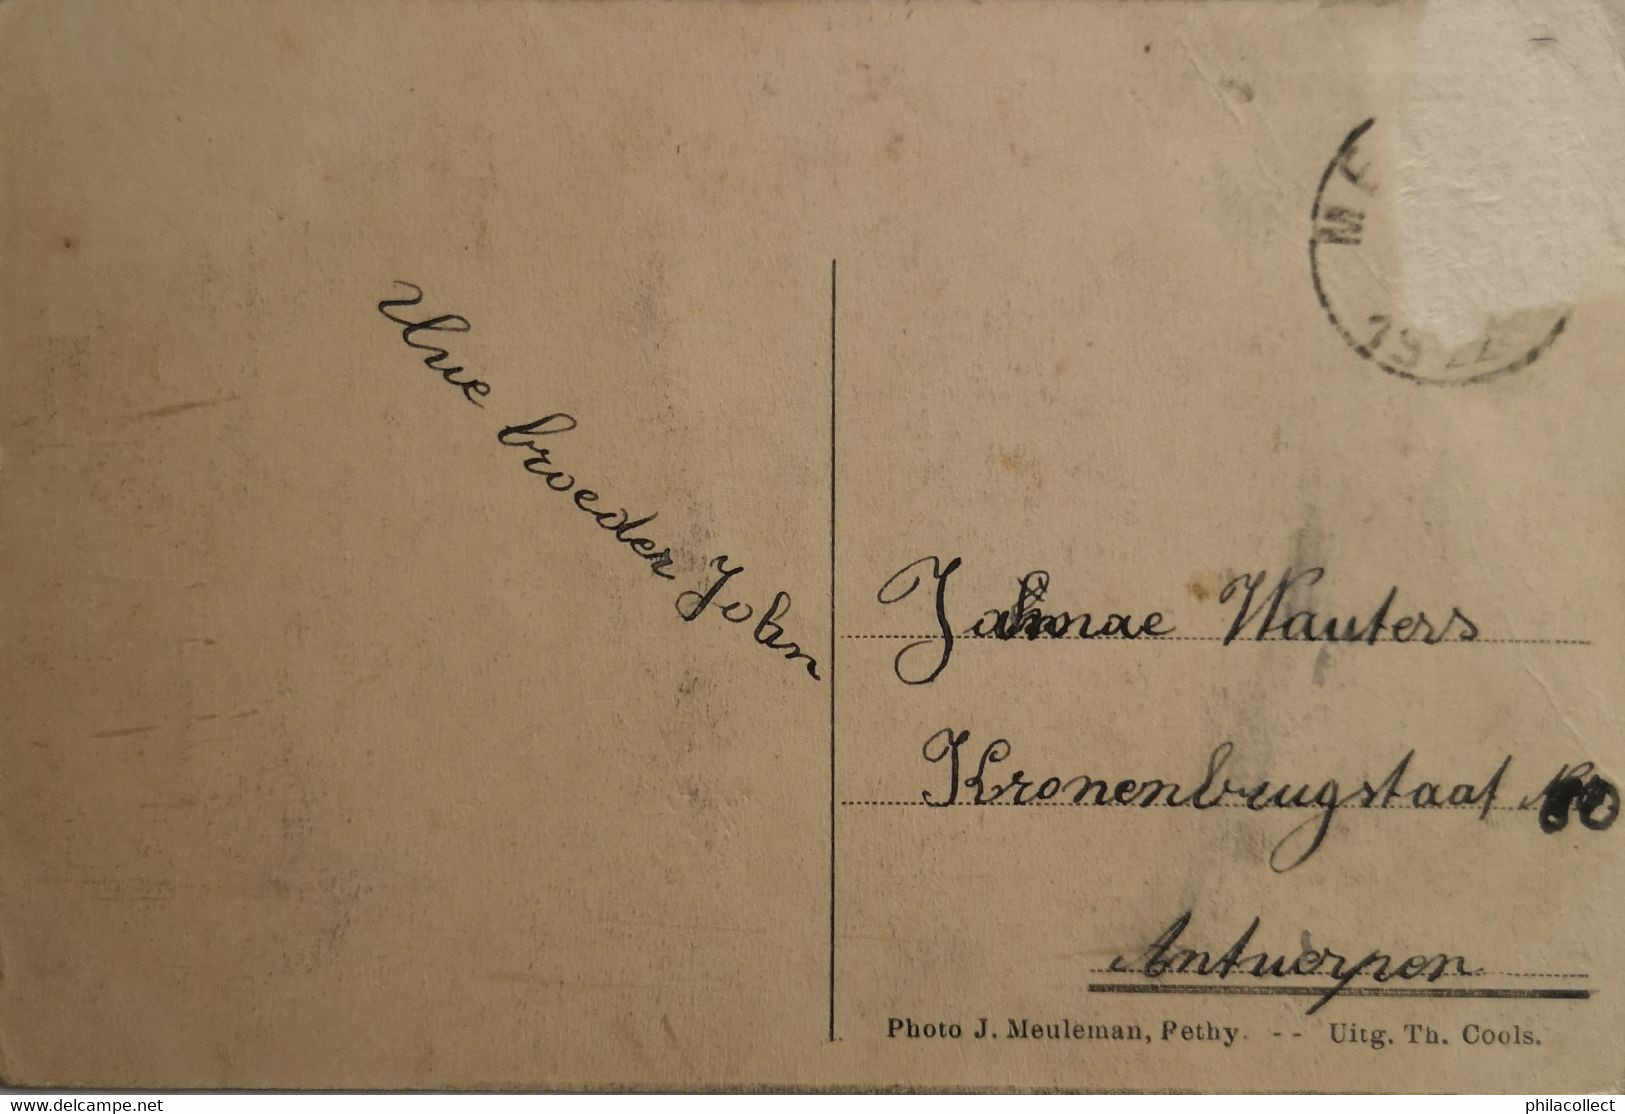 Uwe broeder John
M E
Wauters
Kronenbrugstaat
Antwerpen
Photo J. Meuleman, Pethy. -- Uitg. Th. Cools.
http://www.delcampe.net
philacollect